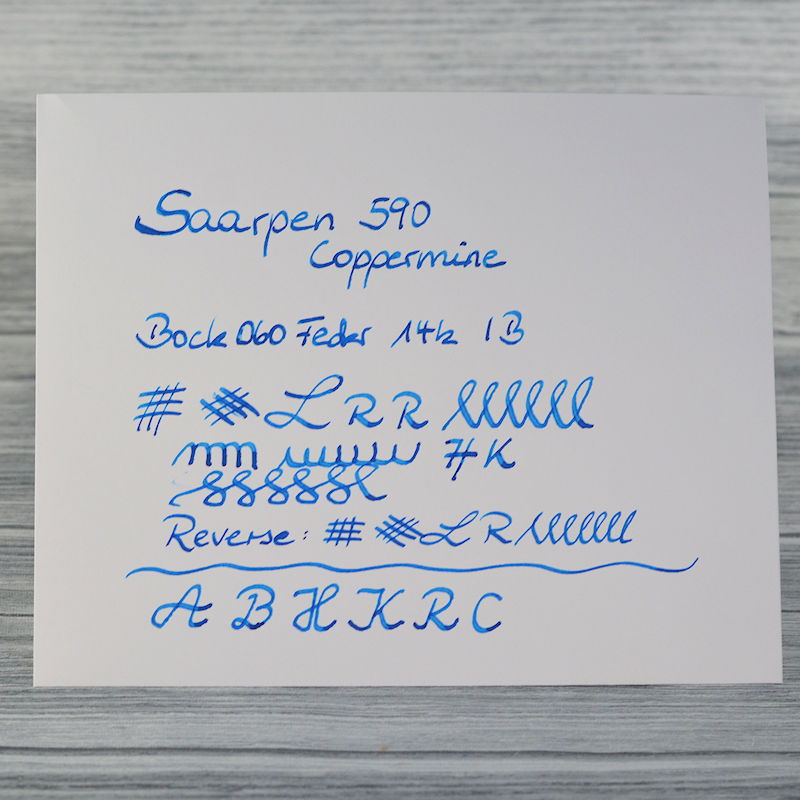 Saarpen 590
Coppermine
Bock 060 Feder 14k IB
# # L R R llllll
mm uuuuu H K
Reverse: # # L R lllllll
A B H K R C